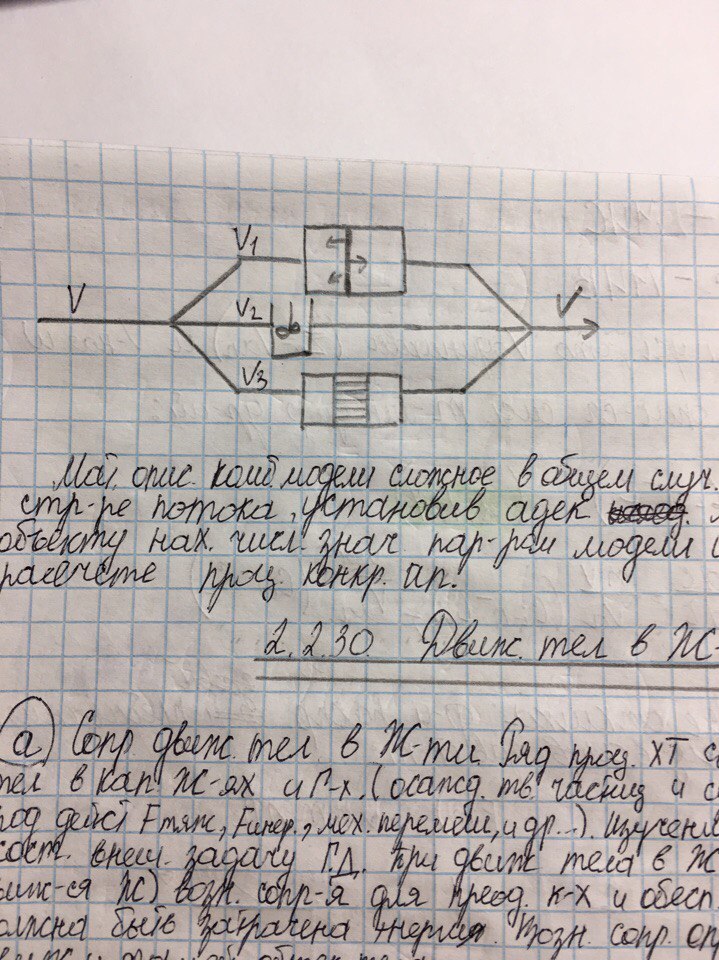 V1
V
V2
V
V3
Мат. опис. комб. модели сложное в общем случ.
стр-ре потока, установив адек
объекту нах. числ. знач. пар-ров модели и
расчете проц. конкр. ап.
2.2.30. Движ. тел в Ж-
а) Сопр. движ. тел в Ж-ти. Ряд проц. ХТ с
тел в кап. Ж-ях и Г-х. (осажд. тв. частиц и
под дейст Fтяж, Fинер., мех. перемеш, и др..). Изучени
сост. внеш. задачу Г.Д. При движ тела в Ж
виж-ся Ж) возн. сопр-я для преод. к-х и обесп.
олжна быть затрачена энергия. Возн. сопр. оп